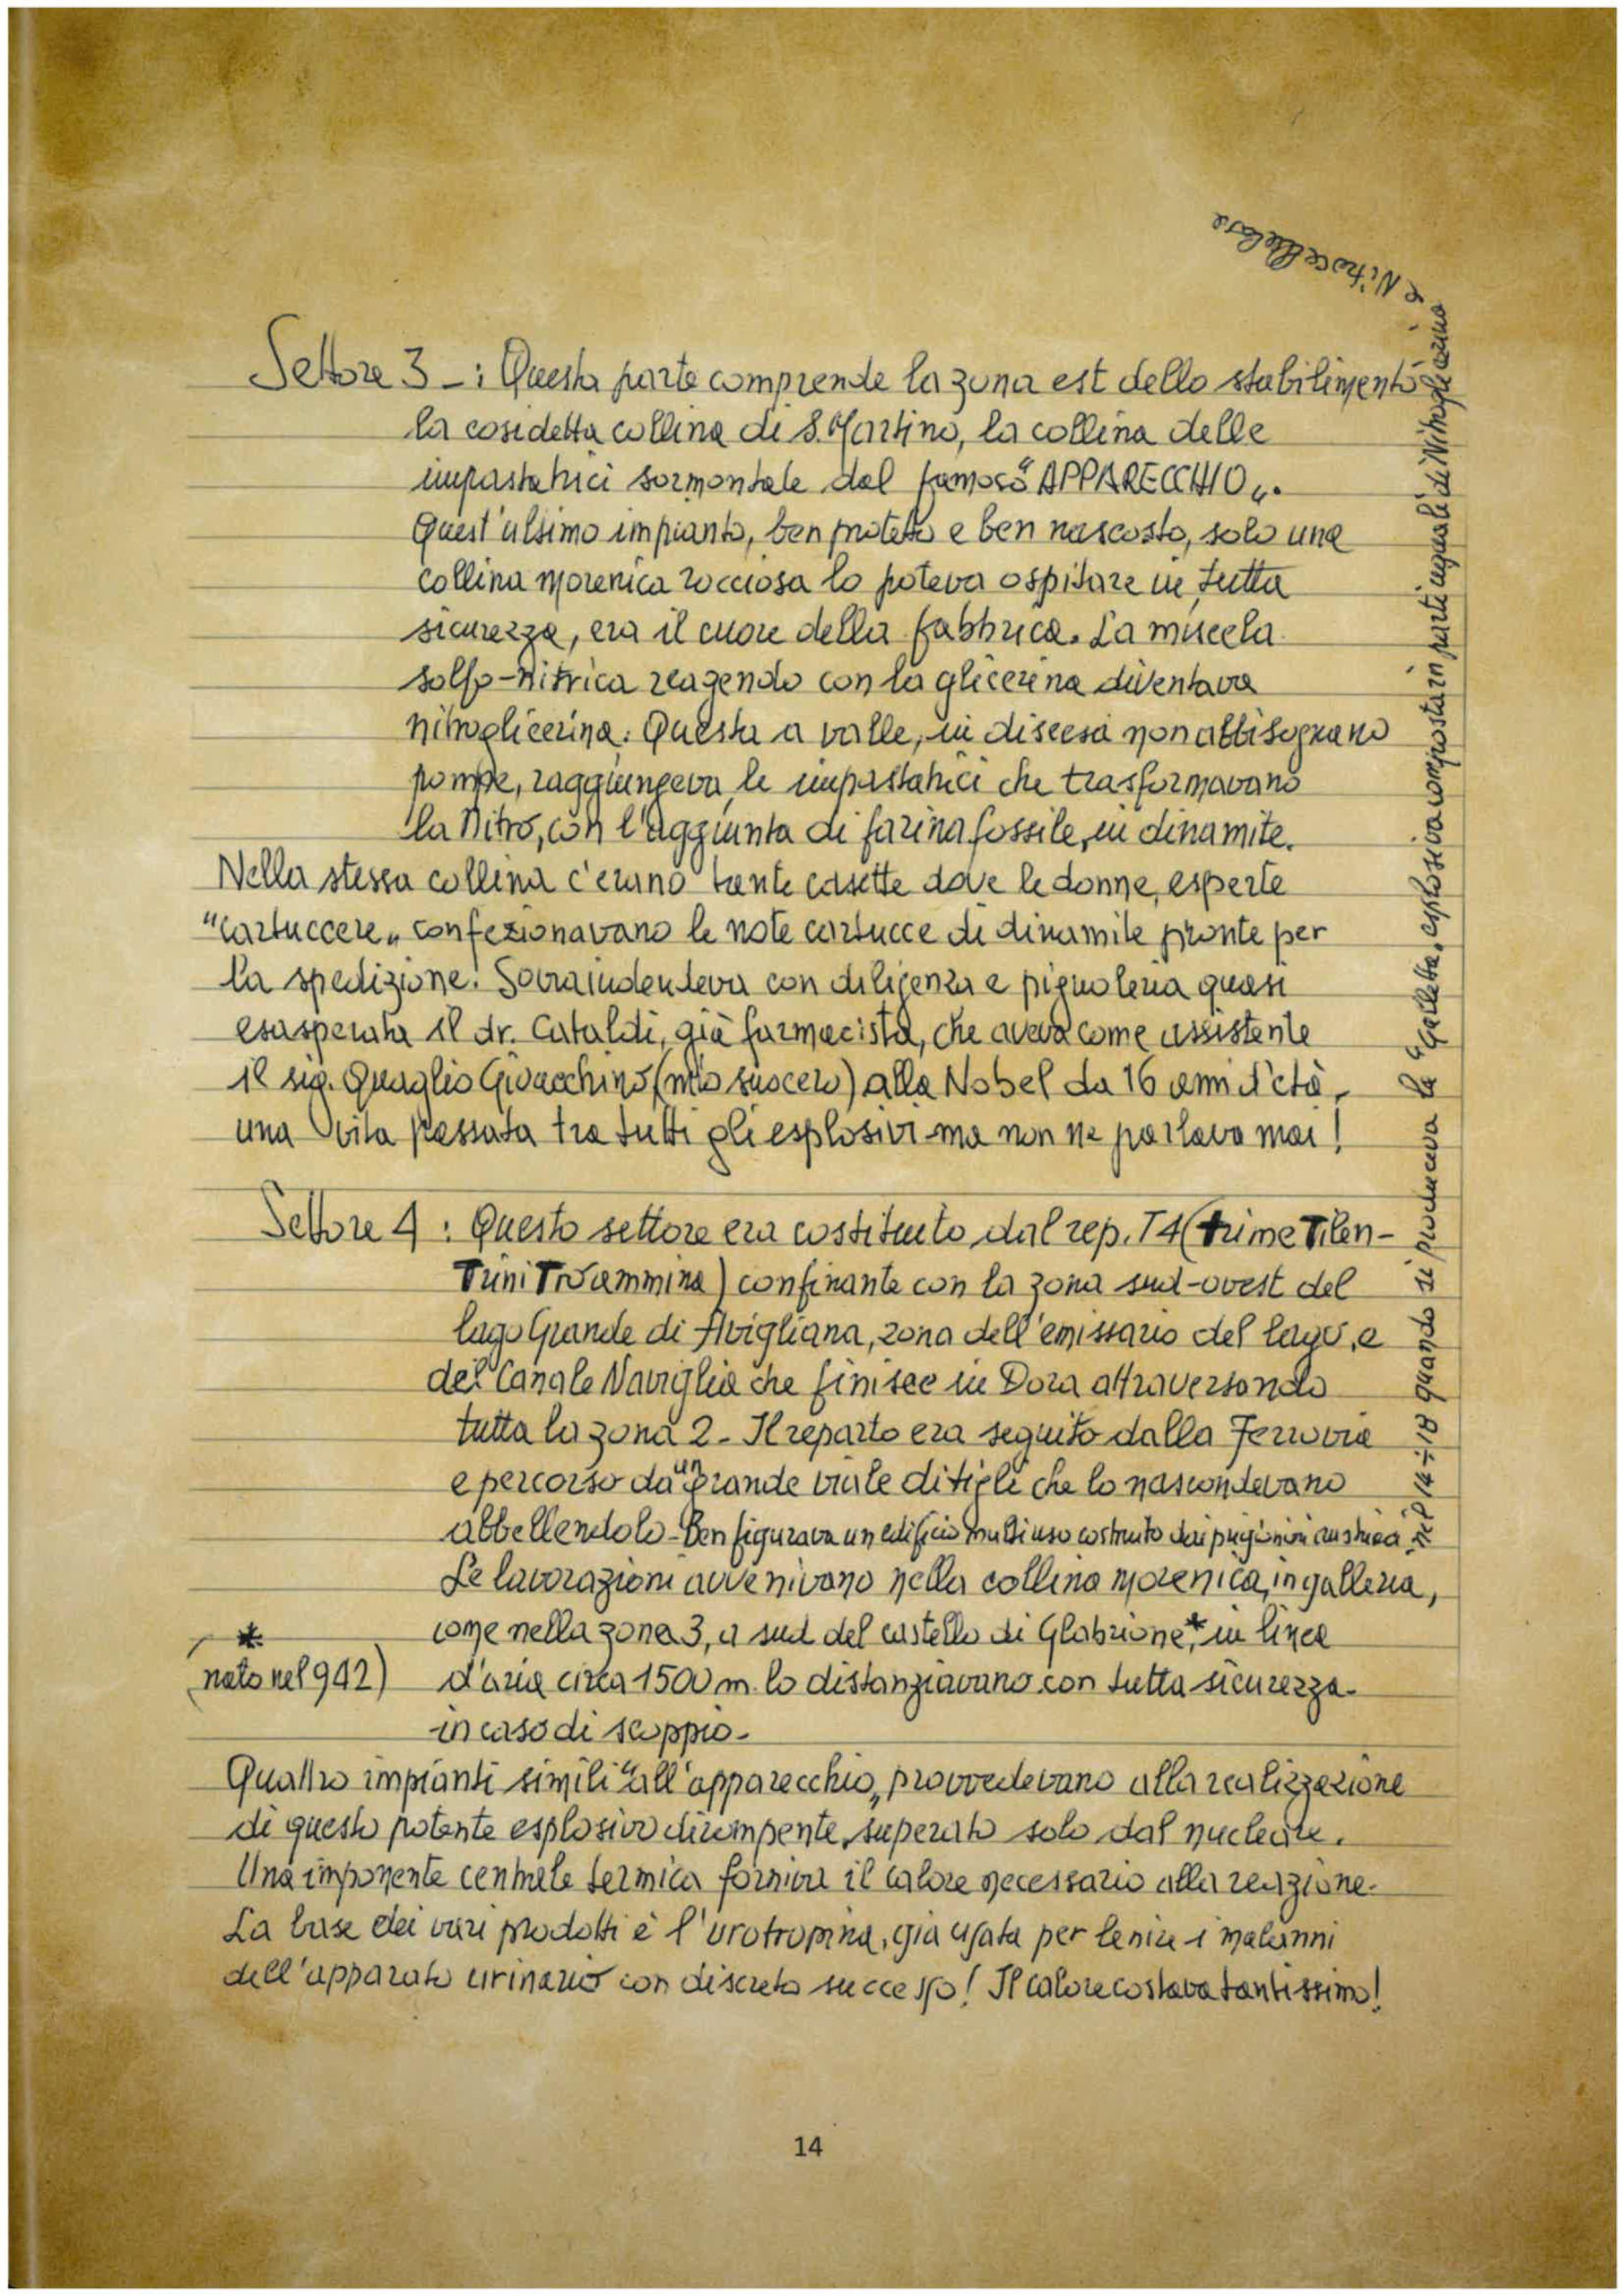 Settore 3 - : Questa parte comprende la zona est dello stabilimento
la cosidetta collina di S. Martino, la collina delle
impastatrici sormontate dal famoso "APPARECCHIO".
Quest'ultimo impianto, ben protetto e ben nascosto, solo una
collina morenica rocciosa lo poteva ospitare in tutta
sicurezza, era il cuore della fabbrica. La miscela
solfo-nitrica reagendo con la glicerina diventava
nitroglicerina. Questa a valle, in discesa non abbisognano
pompe, raggiungeva le impastatrici che trasformavano
la Nitro, con l'aggiunta di farina fossile, in dinamite.
Nella stessa collina c'erano tante casette dove le donne, esperte
"cartuccere" confezionavano le note cartucce di dinamite pronte per
la spedizione. Sovraindendeva con diligenza e pignoleria quasi
esasperata il dr. Cataldi, già farmacista, che aveva come assistente
il sig. Quaglio Givacchino (mio suocero) alla Nobel da 16 anni d'età,
una vita passata tra tutti gli esplosivi-ma non ne parlava mai!
Settore 4 : Questo settore era costituito dal rep. T4 (TrimeTilen-
TriniTroammina) confinante con la zona sud-ovest del
lago Grande di Avigliana, zona dell'emissario del lago, e
del Canale Naviglia che finisce in Dora attraversando
tutta la zona 2 - Il reparto era seguito dalla Ferrovia
e percorso da un grande viale di tigli che lo nascondevano
abbellendolo - Ben figurava un edificio multiuso costruito dai prigionieri austriaci
Le lavorazioni avvenivano nella collina morenica, in galleria,
come nella zona 3, a sud del castello di Glabrione,* in linea
d'aria circa 1500 m. lo distanziavano con tutta sicurezza
in caso di scoppio -
*
nato nel 942)
Quattro impianti simili "all'apparecchio" provvedevano alla realizzazione
di questo potente esplosivo dirompente, superato solo dal nucleare.
Una imponente centrale termica forniva il calore necessario alla reazione.
La base dei vari prodotti è l'urotropina, già usata per lenire i malanni
dell'apparato urinario con discreto successo! Il calore costava tantissimo!
nel 14÷18 quando si produceva la "Galletta" esplosiva composta in parti uguali di Nitroglicerina
e Nitrocellulosa
14